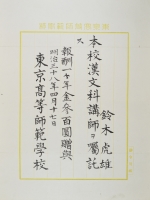 鈴木虎雄
本校漢文科講師ヲ囑託
ス
報酬一ケ年金參百圓贈與
明治三十八年四月十七日
東京高等師範學校